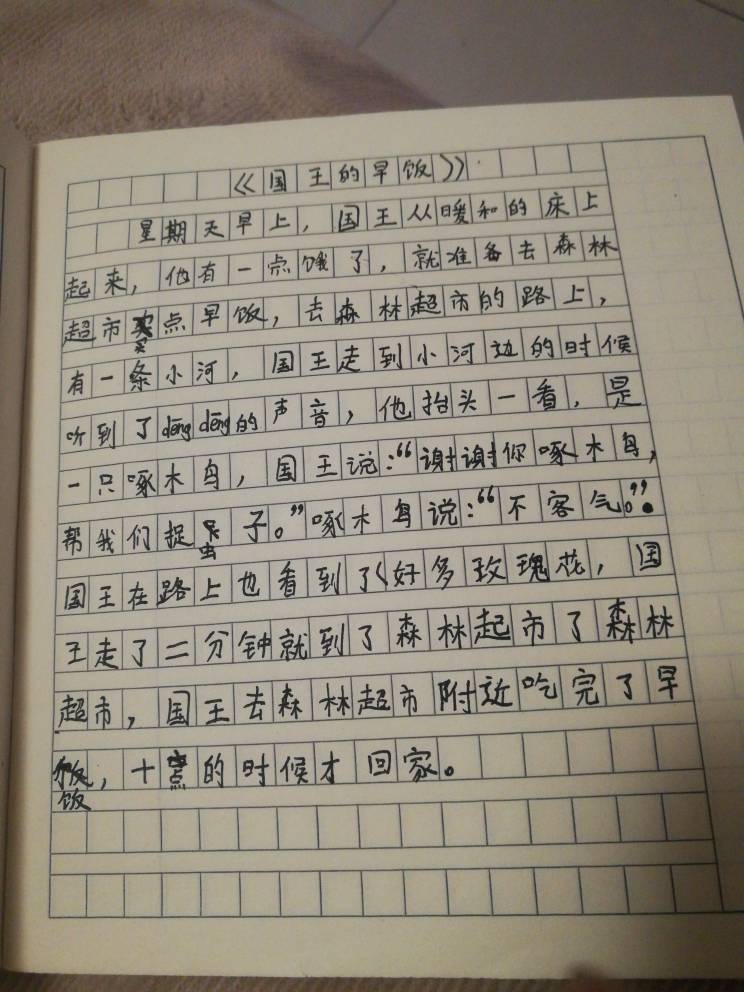 《国王的早饭》
星期天早上，国王从暖和的床上
起来，他有一点饿了，就准备去森林
超市买点早饭，去森林超市的路上，
有一条小河，国王走到小河边的时候
听到了dēng dēng的声音，他抬头一看，是
一只啄木鸟，国王说：“谢谢你啄木鸟，
帮我们捉虫子。”啄木鸟说：“不客气。”
国王在路上也看到了好多玫瑰花，国
王走了二分钟就到了森林起市了森林
超市，国王去森林超市附近吃完了早
饭，十点的时候才回家。